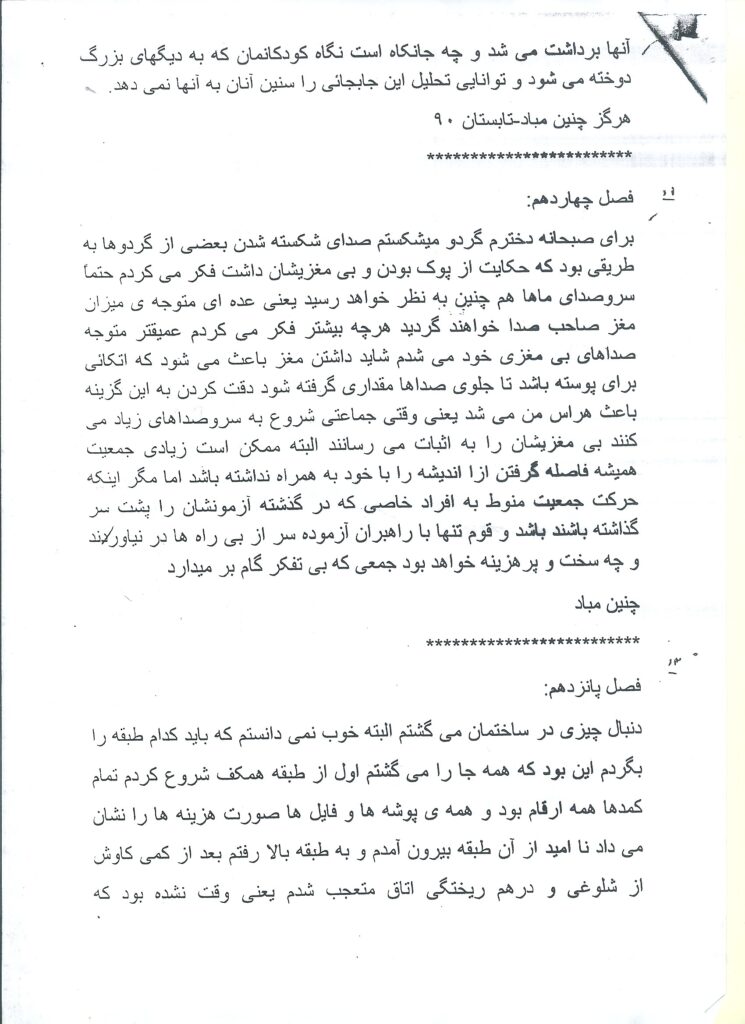 آنها برداشت می شد و چه جانکاه است نگاه کودکانمان که به دیگهای بزرگ
دوخته می شود و توانایی تحلیل این جابجائی را سنین آنان به آنها نمی دهد.
هرگز چنین مباد-تابستان ۹۰
************************
فصل چهاردهم:
برای صبحانه دخترم گردو میشکستم صدای شکسته شدن بعضی از گردوها به
طریقی بود که حکایت از پوک بودن و بی مغزیشان داشت فکر می کردم حتماً
سروصدای ماها هم چنین به نظر خواهد رسید یعنی عده ای متوجه ی میزان
مغز صاحب صدا خواهند گردید هرچه بیشتر فکر می کردم عمیقتر متوجه
صداهای بی مغزی خود می شدم شاید داشتن مغز باعث می شود که اتکائی
برای پوسته باشد تا جلوی صداها مقداری گرفته شود دقت کردن به این گزینه
باعث هراس من می شد یعنی وقتی جماعتی شروع به سروصداهای زیاد می
کنند بی مغزیشان را به اثبات می رسانند البته ممکن است زیادی جمعیت
همیشه فاصله گرفتن ازا اندیشه را با خود به همراه نداشته باشد اما مگر اینکه
حرکت جمعیت منوط به افراد خاصی که در گذشته آزمونشان را پشت سر
گذاشته باشند باشد و قوم تنها با راهبران آزموده سر از بی راه ها در نیاورند
و چه سخت و پرهزینه خواهد بود جمعی که بی تفکر گام بر میدارد
چنین مباد
*************************
فصل پانزدهم:
دنبال چیزی در ساختمان می گشتم البته خوب نمی دانستم که باید کدام طبقه را
بگردم این بود که همه جا را می گشتم اول از طبقه همکف شروع کردم تمام
کمدها همه ارقام بود و همه ی پوشه ها و فایل ها صورت هزینه ها را نشان
می داد نا امید از آن طبقه بیرون آمدم و به طبقه بالا رفتم بعد از کمی کاوش
از شلوغی و درهم ریختگی اتاق متعجب شدم یعنی وقت نشده بود که